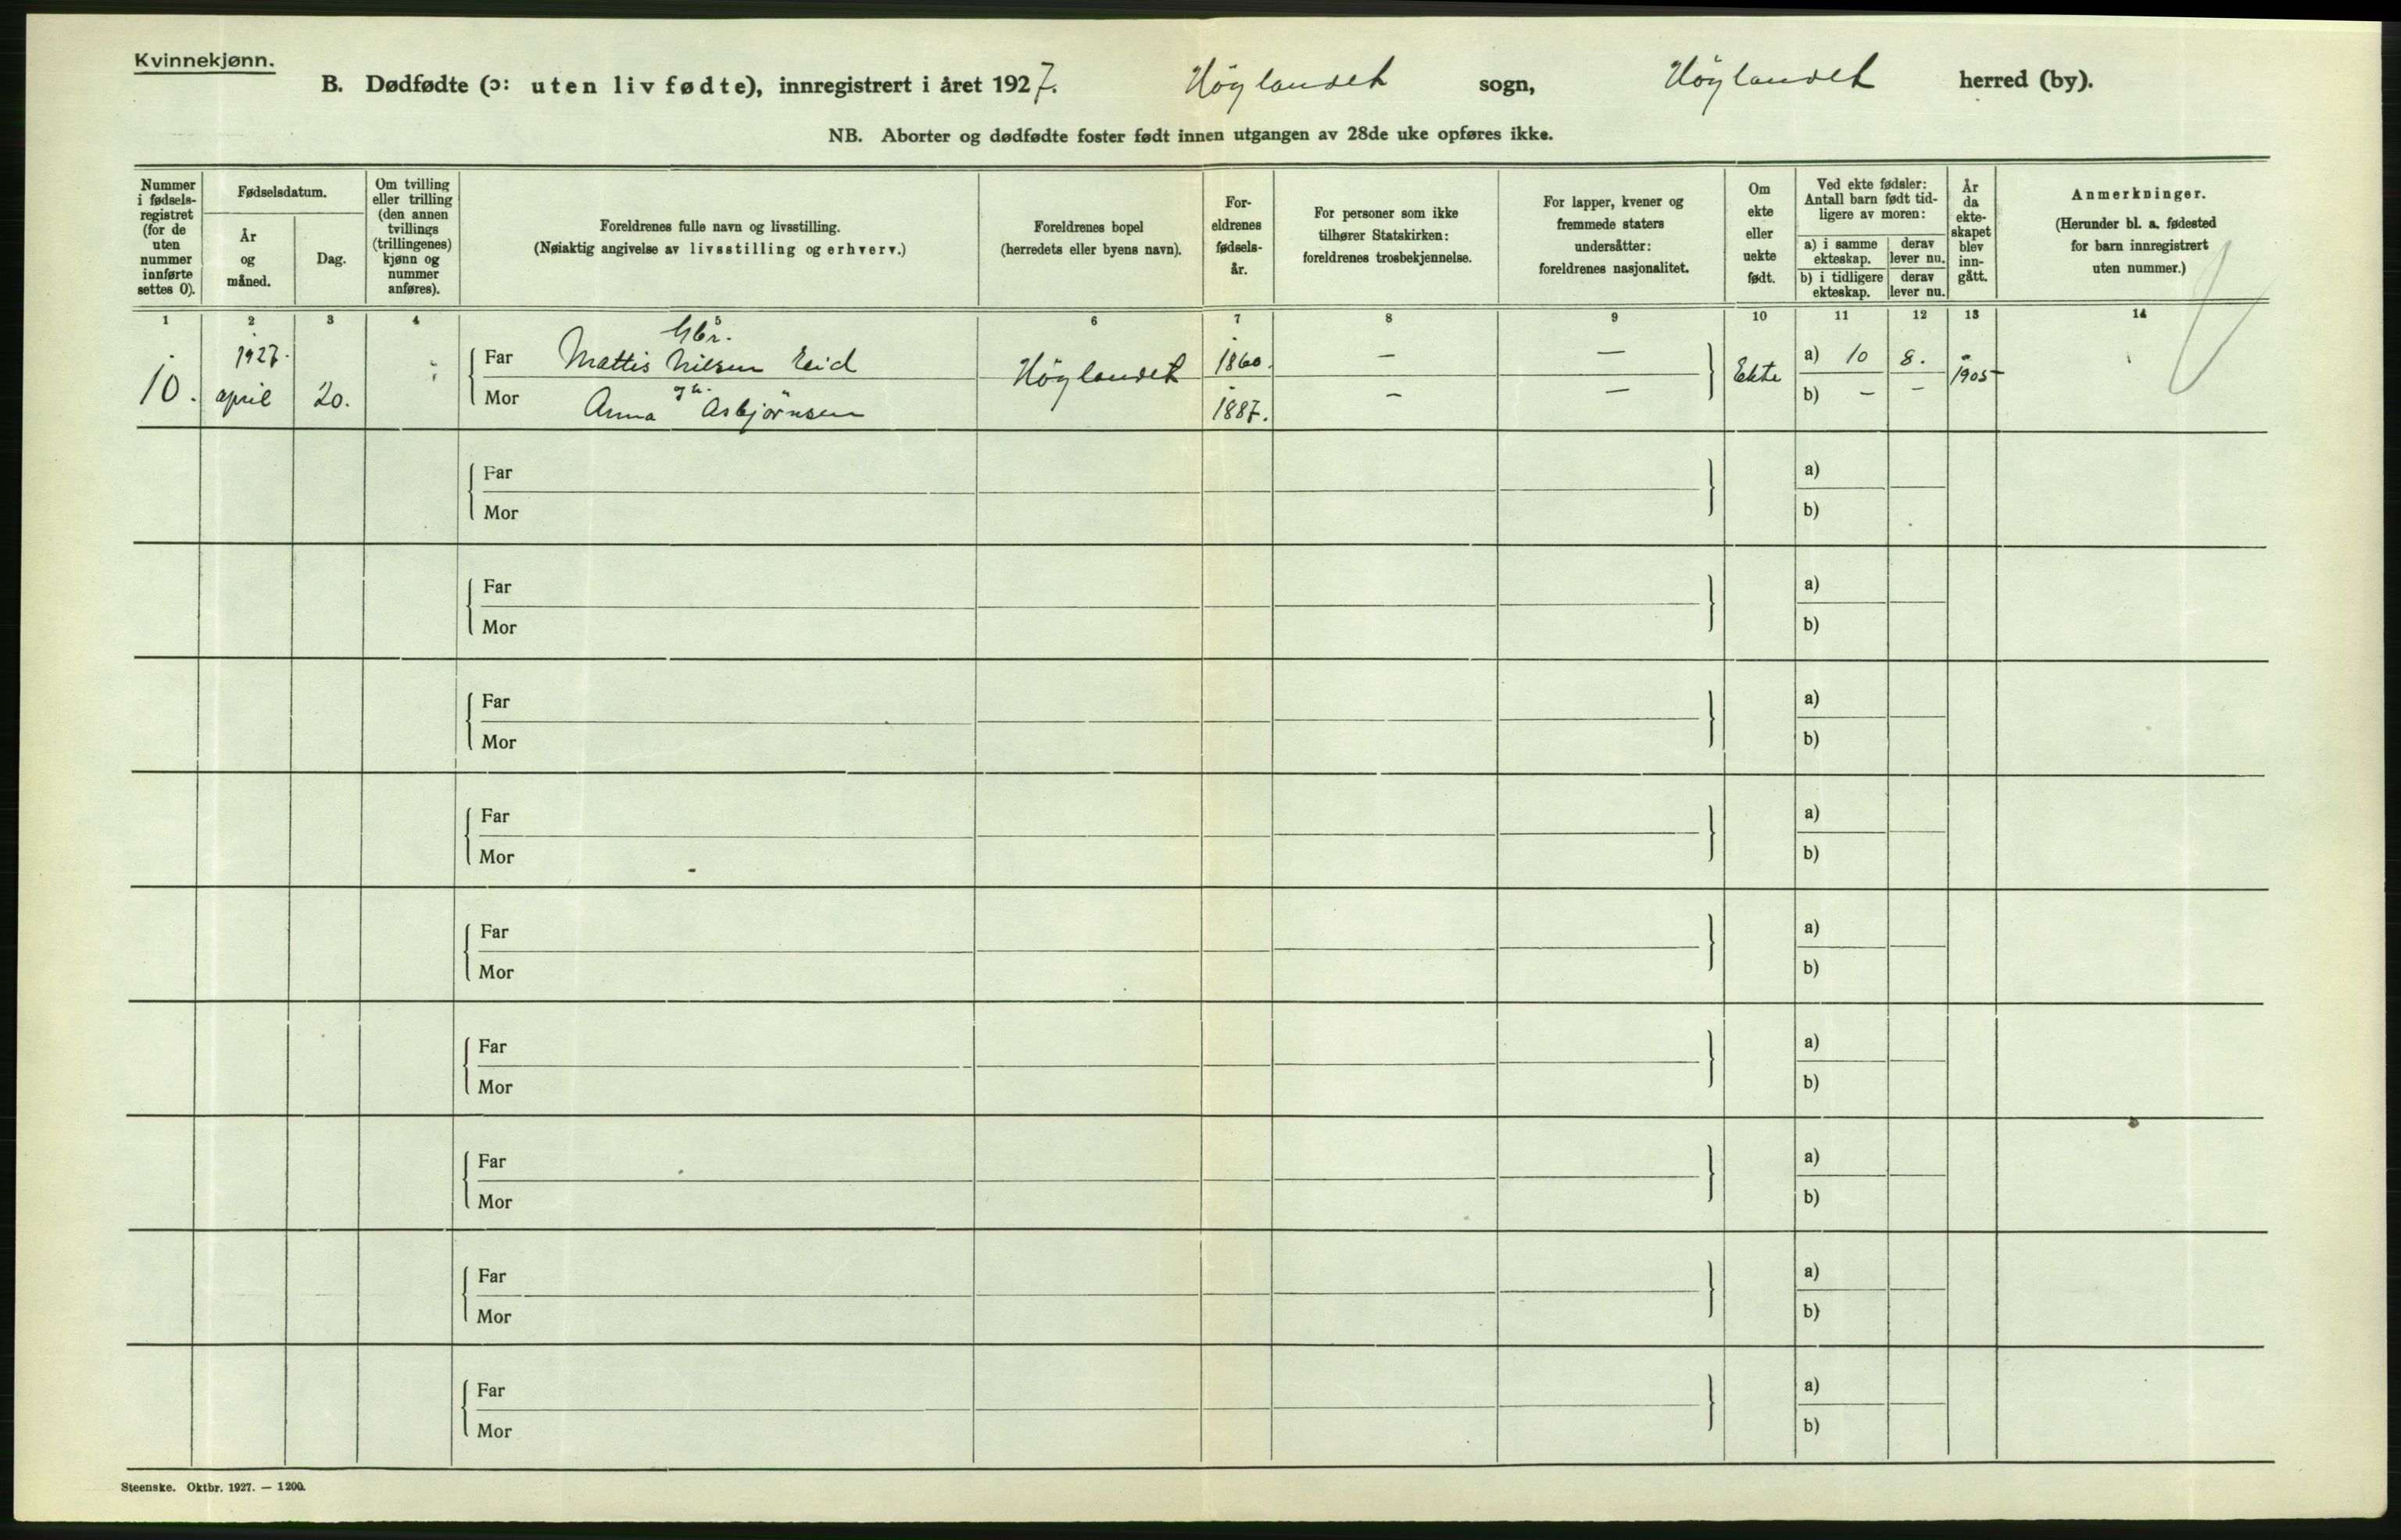 Kvinnekjønn.
B. Dødfødte (ɔ: uten liv fødte), innregistrert i året 1927. Höylandet sogn, Höylandet herred (by).
NB. Aborter og dødfødte foster født innen utgangen av 28de uke opføres ikke.
Nummer i fødsels-registret (for de uten nummer innførte settes 0).
Fødselsdatum.
År og måned.
Dag.
Om tvilling eller trilling (den annen tvillings (trillingenes) kjønn og nummer anføres).
Foreldrenes fulle navn og livsstilling.
(Nøiaktig angivelse av livsstilling og erhverv.)
Foreldrenes bopel
(herredets eller byens navn).
For-eldrenes fødsels-år.
For personer som ikke tilhører Statskirken: foreldrenes trosbekjennelse.
For lapper, kvener og fremmede staters undersåtter: foreldrenes nasjonalitet.
Om ekte eller uekte født.
Ved ekte fødsler: Antall barn født tid-ligere av moren:
a) i samme ekteskap. derav lever nu.
b) i tidligere ekteskap. derav lever nu.
År da ekte-skapet blev inn-gått.
Anmerkninger.
(Herunder bl. a. fødested for barn innregistrert uten nummer.)
1 2 3 4 5 6 7 8 9 10 11 12 13 14
Gbr.
10. 1927. april 20. Far Mattis Nilsen Eid Höylandet 1860. — — Ekte a) 10 8. 1905
Mor Anna Asbjørnsen 1887. — — b) — —
Far a)
Mor b)
Far a)
Mor b)
Far a)
Mor b)
Far a)
Mor b)
Far a)
Mor b)
Far a)
Mor b)
Far a)
Mor b)
Far a)
Mor b)
Far a)
Mor b)
Steenske. Oktbr. 1927. — 1200.